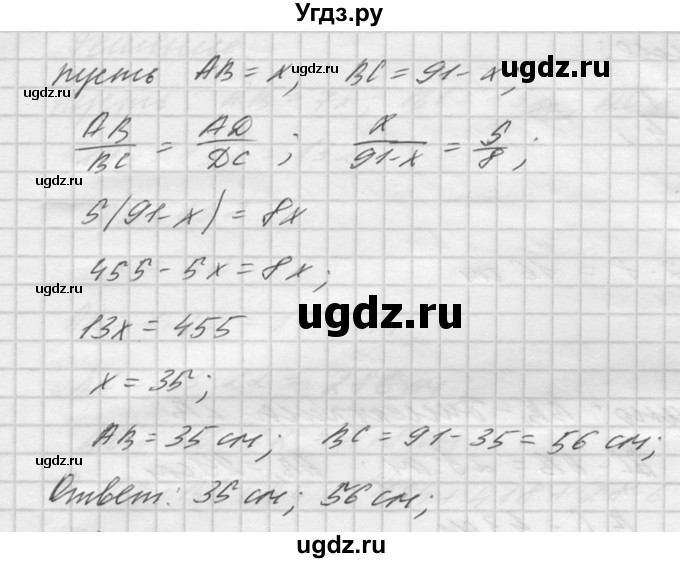 Угдз.ру
пусть AB = x; BC = 91 - x;
AB/BC = AD/DC; x/(91-x) = 5/8;
5(91-x) = 8x
455 - 5x = 8x;
13x = 455
x = 35;
AB = 35 см; BC = 91 - 35 = 56 см;
Ответ: 35 см; 56 см;
ugdz.ru
ugdz.ru
ugdz.ru
ugdz.ru
ugdz.ru
ugdz.ru
ugdz.ru
ugdz.ru
ugdz.ru
ugdz.ru
ugdz.ru